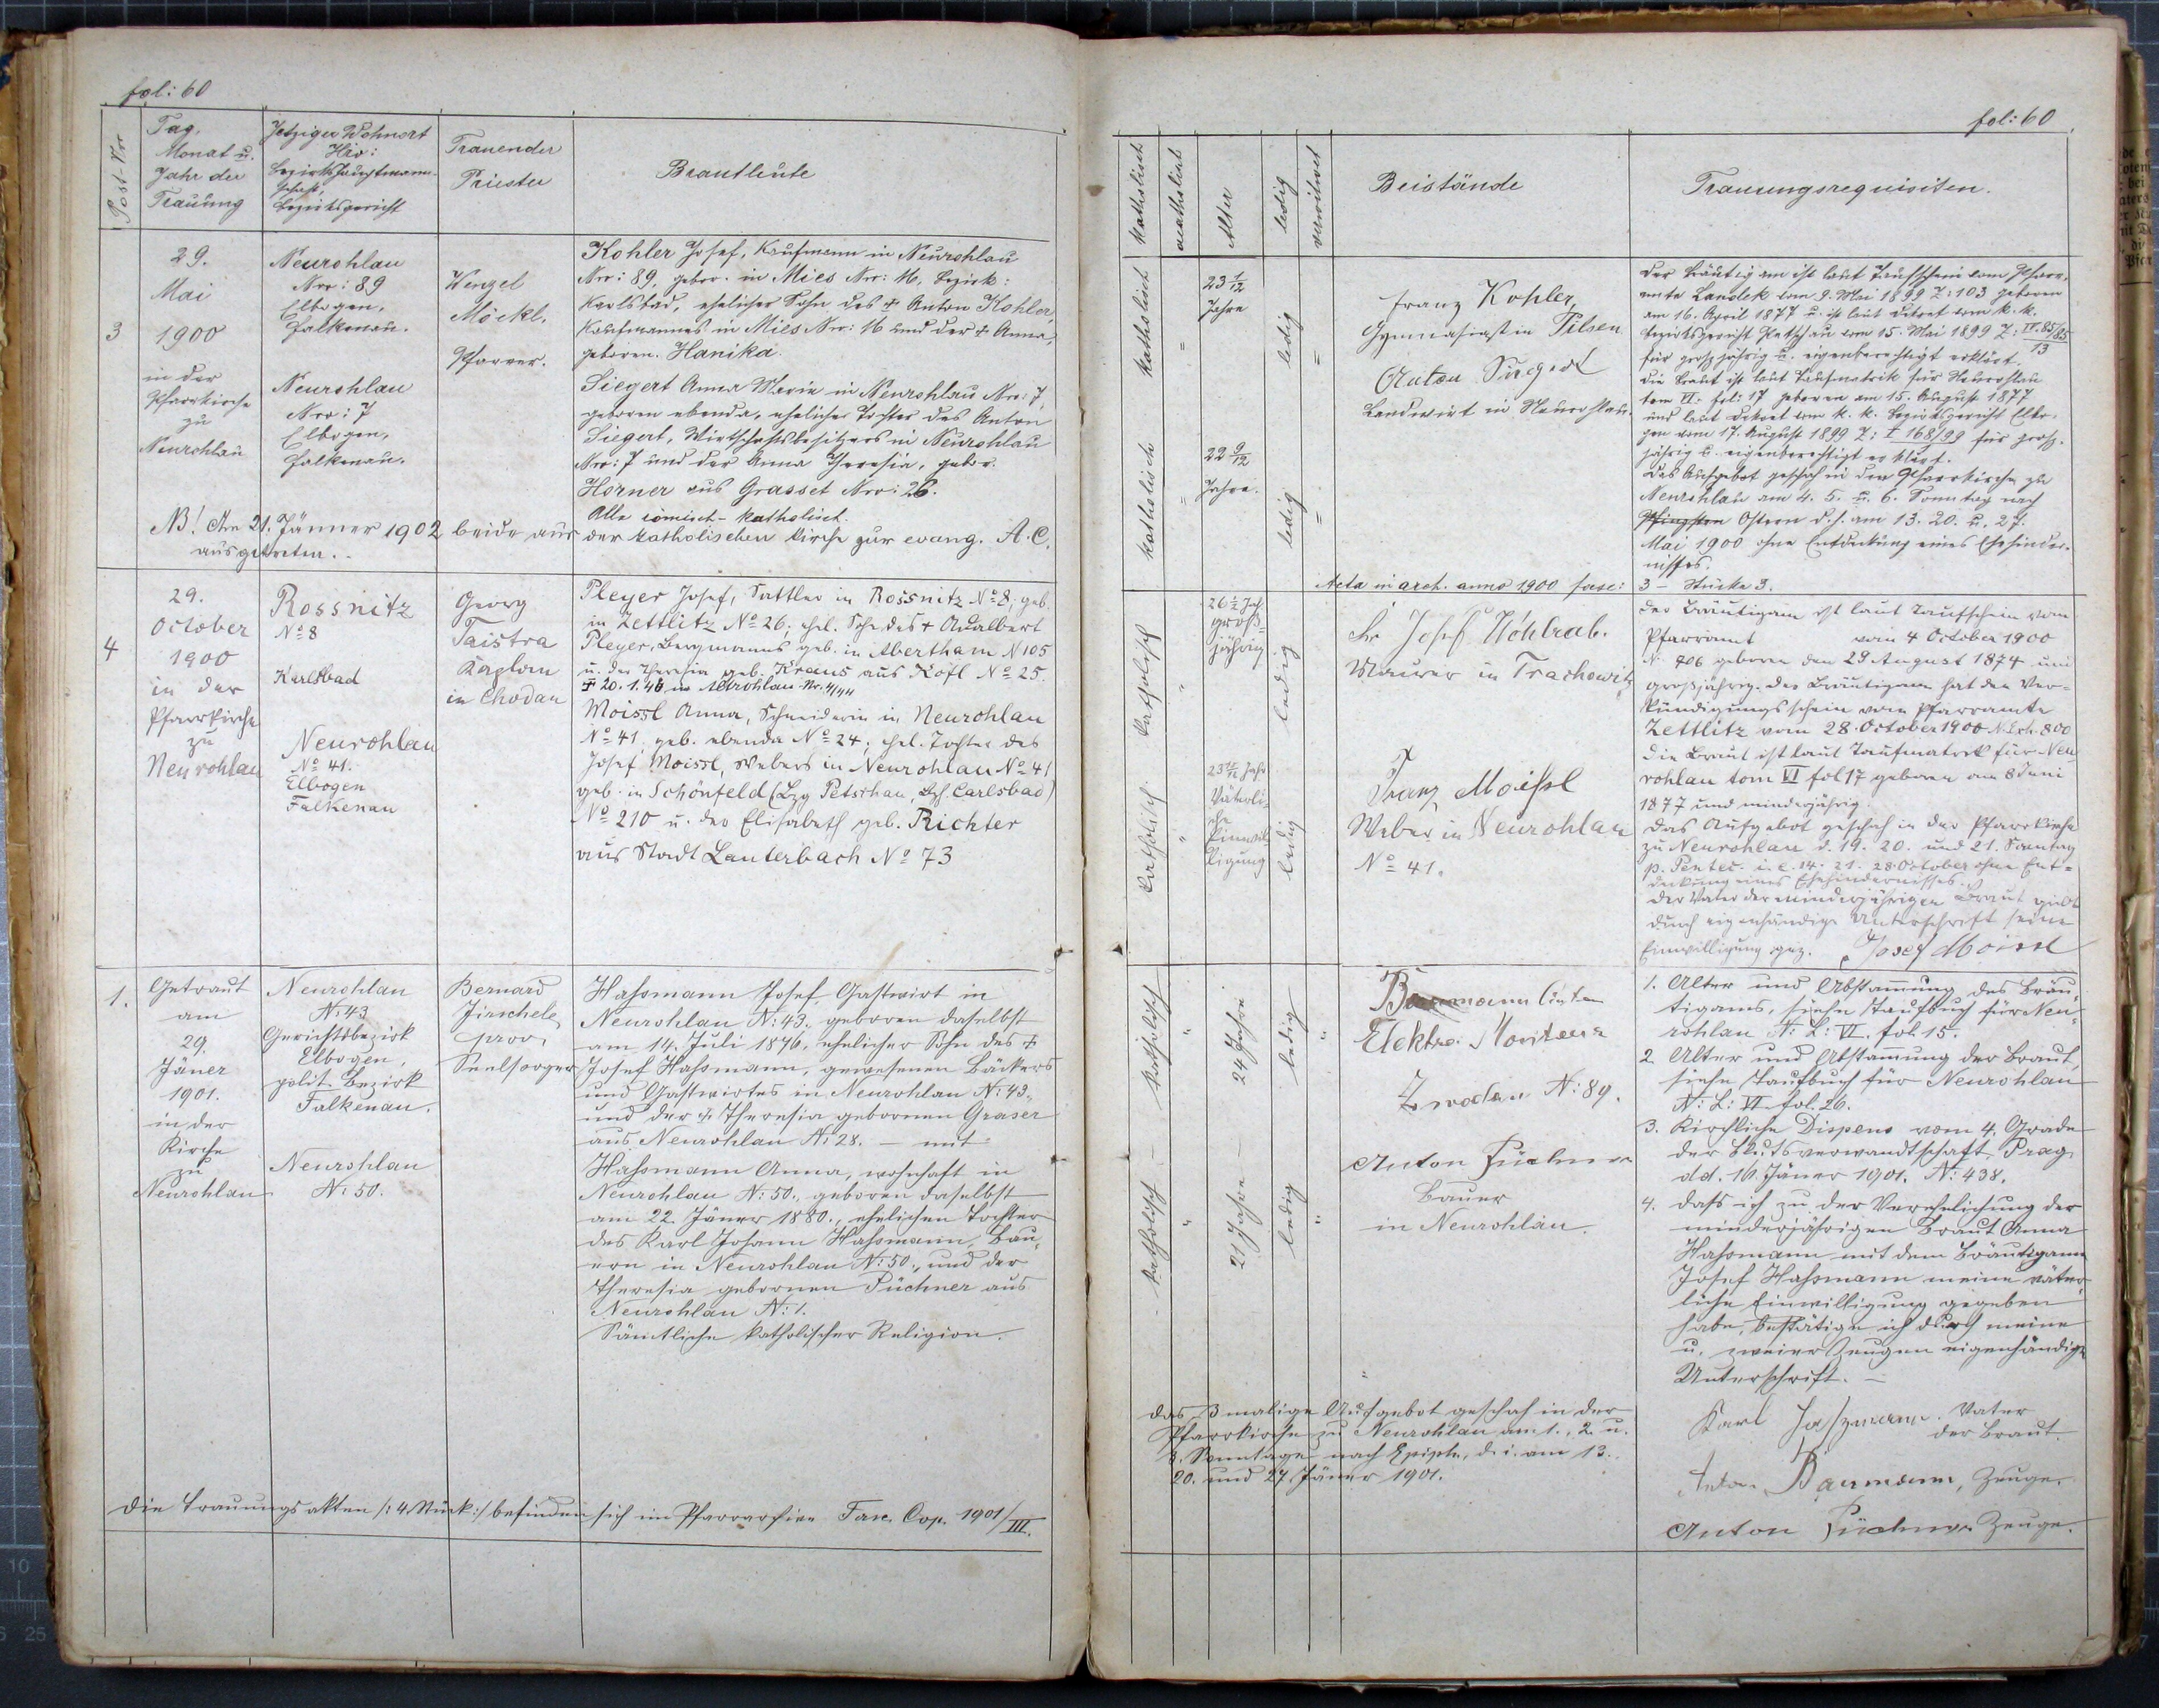 fol: 60
Post-Nr
Tag,
Monat u.
Jahr der
Trauung
Jetziger Wohnort
Hro:
Bezirkshauptmann-
schaft,
Bezirksgericht
Trauender
Priester
Brautleute
3
29.
Mai
1900
in der
Pfarrkirche
zu
Neurohlau
Neurohlau
Nro: 89
Elbogen,
Falkenau.
Neurohlau
Nro: 7
Elbogen,
Falkenau.
Wenzel
Möckl,
Pfarrer.
Kohler Josef, Kaufmann in Neurohlau
Nro: 89, gebor. in Mies Nro: 16, Bezirk:
Karlsbad, ehelicher Sohn des † Anton Kohler,
Kaufmannes in Mies Nro: 16 und der † Anna,
geboren. Hanika.
Siegert Anna Maria in Neurohlau Nro: 7,
geboren ebenda, eheliche Tochter des Anton
Siegert, Wirtschaftsbesitzers in Neurohlau
Nro: 7 und der Anna Theresia, gebor.
Horner aus Grasset Nro: 26.
Alle römisch-katholisch.
NB! Am 21. Jänner 1902 beide aus der katholischen Kirche zur evang. A.C.
ausgetreten.
4
29.
October
1900
in der
Pfarrkirche
zu
Neurohlau
Rossnitz
No 8
Karlsbad
Neurohlau
No 41.
Elbogen
Falkenau
Georg
Taistra
Kaplan
in Chodau
Pleyer Josef, Sattler in Rossnitz No 8, geb.
in Zettlitz No 26; ehel. Sohn des † Adalbert
Pleyer, Bergmanns geb. in Abertham N 105
u. der Theresia geb. Kraus aus Kofl No 25.
† 20. 1. 46 in Altrohlau Nr. 4/44
Moissl Anna, Schneiderin in Neurohlau
No 41, geb. ebenda No 24; ehel. Tochter des
Josef Moissl, Webers in Neurohlau No 41
geb. in Schönfeld (Bzg Petschau, Bzh. Carlsbad)
No 210 u. der Elisabeth geb. Richter
aus Stadt Lauterbach No 73
1.
Getraut
am
29.
Jäner
1901.
in der
Kirche
zu
Neurohlau
Neurohlau
N: 43
Gerichtsbezirk
Elbogen,
polit. Bezirk
Falkenau.
Neurohlau
N: 50.
Bernard
Jirschele,
prov.
Seelsorger
Haßmann Josef, Gastwirt in
Neurohlau N: 43., geboren daselbst
am 14. Juli 1876, ehelicher Sohn des †
Josef Haßmann, gewesenen Bäckers
und Gastwirtes in Neurohlau N: 43.,
und der † Theresia gebornen Graser
aus Neurohlau N: 28. — mit
Haßmann Anna, wohnhaft in
Neurohlau N: 50., geboren daselbst
am 22. Jäner 1880., ehelichen Tochter
des Karl Johann Haßmann, Bau-
ern in Neurohlau N: 50., und der
Theresia gebornen Püchner aus
Neurohlau N: 1.
Sämtliche katholischer Religion.
Die Trauungsakten /: 4 Stück :/ befinden sich im Pfarrarchive Fasc. Cop. 1901/III.
fol: 60
katholisch
akatholisch
Alter
ledig
verwitwet
Beistände
Trauungsrequisiten.
katholisch
"
23 1/12
Jahre
ledig
"
katholisch
"
22 9/12
Jahre.
ledig
"
Franz Kohler,
Gymnasiast in Pilsen
Anton Siegert
Landwirt in Neurohlau.
Der Bräutigam ist laut Taufschein vom Pfarr-
amte Landek vom 9. Mai 1899 Z: 103 geboren
am 16. April 1877 u. ist laut Dekret vom k. k.
Bezirksgericht Petschau vom 15. Mai 1899 Z: IV. 85/85
13
für großjährig u. eigenberechtigt erklärt.
Die Braut ist laut Taufmatrik für Neurohlau
tom VI. fol: 17 geboren am 15. August 1877
und laut Dekret vom k. k. Bezirksgericht Elbo-
gen vom 17. August 1899 Z: I 168/99 für groß-
jährig u. eigenberechtigt erklärt.
Das Aufgebot geschah in der Pfarrkirche zu
Neurohlau am 4. 5. u. 6. Sonntag nach
Pfingsten Ostern d. i. am 13. 20. u. 27.
Mai 1900 ohne Entdeckung eines Ehehinder-
nisses.
Acta in arch. anno 1900 fasc: 3 — Stücke 3.
katholisch
"
26 1/2 Jah.
groß-
jährig
ledig
katholisch
"
Väterli-
che
Einwil-
ligung
ledig
Josef Höhlrab.
Maurer in Trachowitz
Franz Moißl
Weber in Neurohlau
No 41.
Der Bräutigam ist laut Taufschein vom
Pfarramt vom 4 October 1900
N. 706 geboren den 29 August 1874 und
großjährig. Der Bräutigam hat den Ver-
kündigungsschein vom Pfarramte
Zettlitz vom 28. October 1900 N. Exh. 800
Die Braut ist laut Taufmatrik für Neu
rohlau tom VI fol 17 geboren am 8 Juni
1877 und minderjährig.
Das Aufgebot geschah in der Pfarrkirche
zu Neurohlau d. 19. 20. und 21. Sonntag
p. Pentec. i. e. 14. 21. 28. October ohne Ent-
deckung eines Ehehindernisses.
Der Vater der minderjährigen Braut giebt
durch eigenhändige Unterschrift seine
Einwilligung gez. Josef Moissl
katholisch
"
24 Jahre
ledig
"
katholisch
"
21 Jahre
ledig
"
Baumann Anton
Elektro. Monteur
Zwodau N: 89.
Anton Püchner
Bauer
in Neurohlau
1. Alter und Abstammung des Bräu-
tigams, siehe Taufbuch für Neu-
rohlau N: L: VI. fol. 15.
2. Alter und Abstammung der Braut,
siehe Taufbuch für Neurohlau
N: L: VI. fol. 26.
3. Kirchliche Dispens vom 4. Grade
der Blutsverwandtschaft, Prag
dd. 16. Jäner 1901. N: 438.
4. Daß ich zu der Verehelichung der
minderjährigen Braut Anna
Haßmann mit dem Bräutigam
Josef Haßmann meine väter-
liche Einwilligung gegeben
habe, bestätige ich durch meine
u. zweier Zeugen eigenhändige
Unterschrift. —
Karl Haßmann. Vater
der Braut.
Anton Baumann, Zeuge.
Anton Püchner Zeuge.
Das 3malige Aufgebot geschah in der
Pfarrkirche zu Neurohlau am 1., 2. u.
3. Sonntage nach Epiph., d. i. am 13.
20. und 27 Jäner 1901.